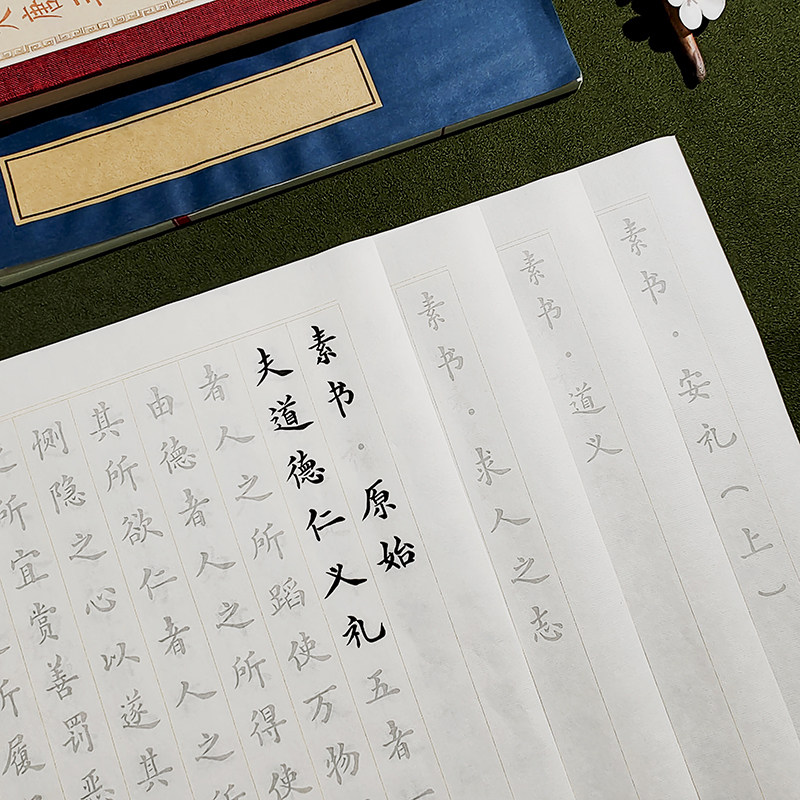 素书·安礼（上）
素书·道义
素书·求人之志
素书·原始
夫道德仁义礼五者一
者人之所蹈使万物
由德者人之所得使
其所欲仁者人之所
恻隐之心以遂其
之所宜赏善罚恶
所履